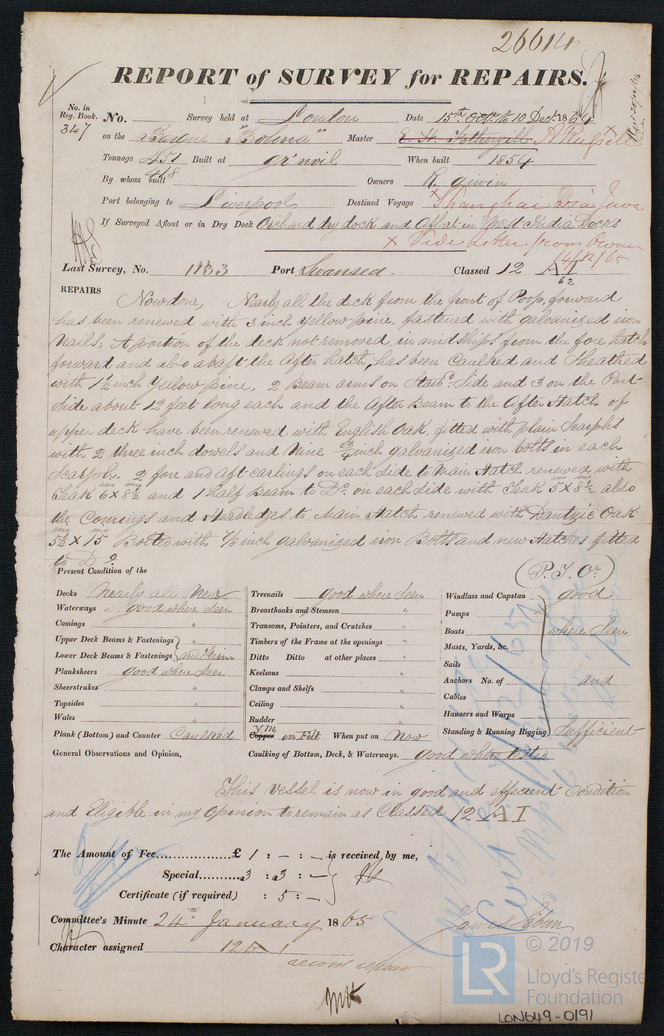 26614
REPORT of SURVEY for REPAIRS.
No. in Reg. Book. 347
No. Survey held at London Date 15th Oct to 10 Dec 1864
on the Barque "Bolina" Master E. H. Fothergill A Russell
Tonnage 451 Built at Gr'nvil When built 1854
418
By whom built Owners R. Girvin
Port belonging to Liverpool Destined Voyage Shanghai via Java
If Surveyed Afloat or in Dry Dock Orchard dry dock and Afloat in West India Docks
x Vide Letter from Owner
14/12/65
Last Survey, No. 1133 Port Swansea. Classed 12 A I
62
REPAIRS Now done, Nearly all the deck from the front of Poop, forward
has been renewed with 3 inch Yellow pine, fastened with galvanized iron
Nails. A portion of the deck not removed in midships from the fore hatch
forward and also abaft the After hatch, has been Caulked and Sheathed
with 1½ inch Yellow pine, 2 Beam arms on Starbd. Side and 3 on the Port
Side about 12 feet long each and the After Beam to the After Hatch of
upper deck have been renewed with English Oak, fitted with plain Scarphs
with 2 three inch dowals and Nine ¾ inch galvanized iron bolts in each
Scarph. 2 fore and aft carlings on each side to Main Hatch renewed with
Teak 6 x 8½ and 1 Half Beam to Do. on each side with Teak 5 x 8½ also
ins ins ins ins
the Comings and Headledges to Main Hatch renewed with Dantzic Oak
5½ x 15 Bolted with ⅞ inch galvanized iron Bolts and new Hatches fitted
to Do.
(P.T.Or)
Present Condition of the
Decks Nearly all New
Waterways good where seen
Comings "
Upper Deck Beams & Fastenings
Lower Deck Beams & Fastenings
Planksheers good where seen
Sheerstrakes "
Topsides "
Wales "
Plank (Bottom) and Counter Caulked
General Observations and Opinion,
Treenails good where seen
Breasthooks and Stemson "
Transoms, Pointers, and Crutches "
Timbers of the Frame at the openings "
Ditto Ditto at other places "
Keelsons "
Clamps and Shelfs "
Ceiling "
Rudder "
Copper YM on Felt When put on Now
Caulking of Bottom, Deck, & Waterways. good where tested
Windlass and Capstan good
Pumps
Boats where seen
Masts, Yards, &c.
Sails
Anchors No. of and
Cables
Hawsers and Warps
Standing & Running Rigging Sufficient
This vessel is now in good and effecient Condition
and Eligible in my opinion to remain as Classed 12 A I
The Amount of Fee............... £ 1 : - : - is received by me,
Special.......... 3 : 3 : -
Certificate (if required) : 5 : -
Committee's Minute 24th January 1865
Character assigned 12 A 1
second repair
© 2019
LR
Lloyd's Register
Foundation
LON649-0191